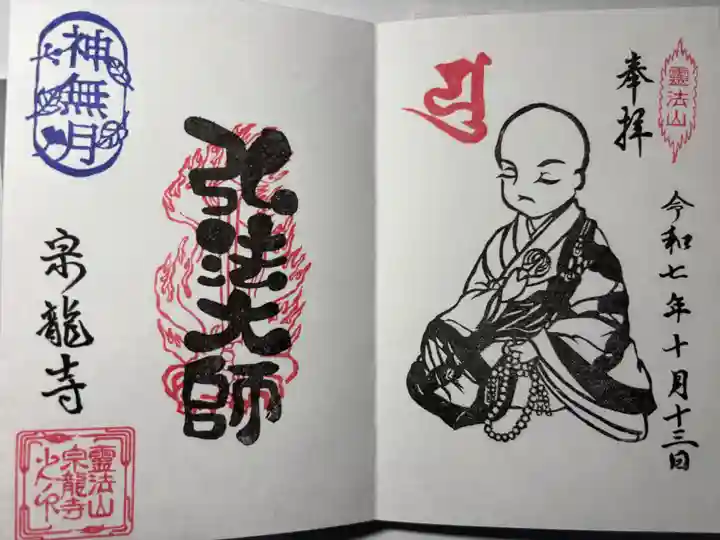 靈法山
奉拝
令和七年十月十三日
弘法大師
神無月
宗龍寺
靈法山
宗龍寺